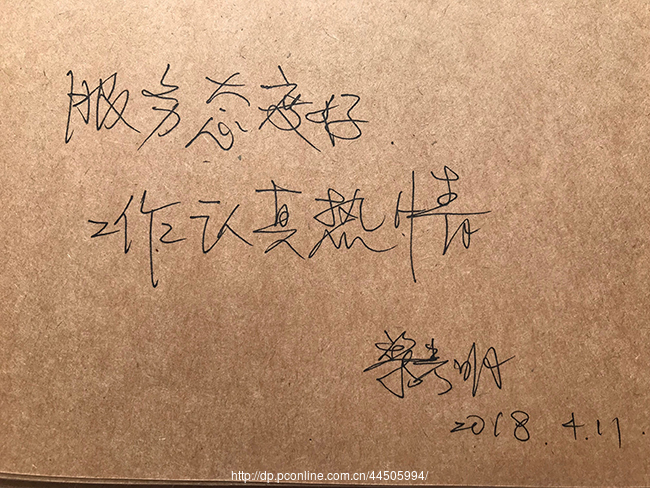 服务态度好
工作认真热情
明
2018.4.11.
http://dp.pconline.com.cn/44505994/